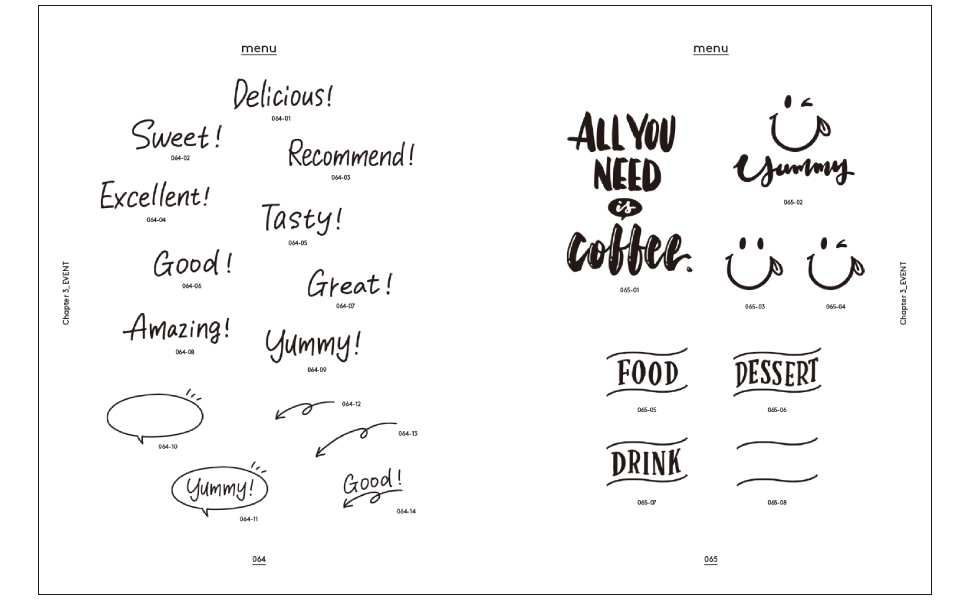 menu
Delicious!
064-01
Sweet!
064-02
Recommend!
064-03
Excellent!
064-04
Tasty!
064-05
Good!
064-06
Great!
064-07
Amazing!
064-08
Yummy!
064-09
064-10
Yummy!
064-11
064-12
064-13
Good!
064-14
Chapter 3_EVENT
064
menu
ALL YOU
NEED
is
coffee.
065-01
Yummy
065-02
065-03
065-04
FOOD
065-05
DESSERT
065-06
DRINK
065-07
065-08
Chapter 3_EVENT
065